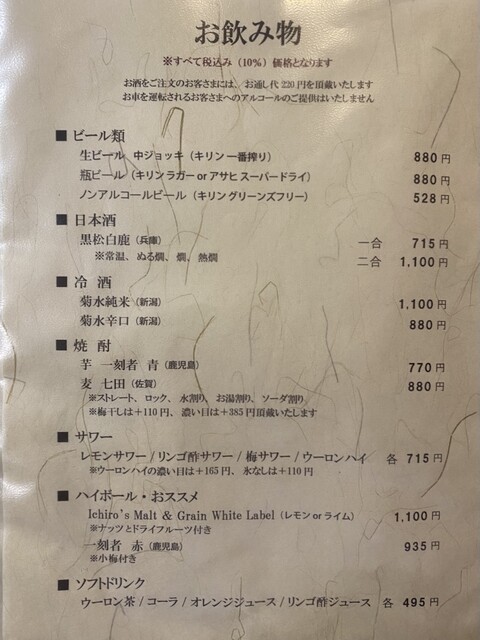 お飲み物
※すべて税込み（10%）価格となります
お酒をご注文のお客さまには、お通し代220円を頂戴いたします
お車を運転されるお客さまへのアルコールのご提供はいたしません
■ ビール類
生ビール 中ジョッキ（キリン一番搾り） 880円
瓶ビール（キリンラガー or アサヒ スーパードライ） 880円
ノンアルコールビール（キリン グリーンズフリー） 528円
■ 日本酒
黒松白鹿（兵庫） 一合 715円
※常温、ぬる燗、燗、熱燗 二合 1,100円
■ 冷 酒
菊水純米（新潟） 1,100円
菊水辛口（新潟） 880円
■ 焼 酎
芋 一刻者 青（鹿児島） 770円
麦 七田（佐賀） 880円
※ストレート、ロック、水割り、お湯割り、ソーダ割り
※梅干しは＋110円、濃い目は＋385円頂戴いたします
■ サワー
レモンサワー / リンゴ酢サワー / 梅サワー / ウーロンハイ 各 715円
※ウーロンハイの濃い目は＋165円、氷なしは＋110円
■ ハイボール・おススメ
Ichiro's Malt & Grain White Label（レモン or ライム） 1,100円
※ナッツとドライフルーツ付き
一刻者 赤（鹿児島） 935円
※小梅付き
■ ソフトドリンク
ウーロン茶 / コーラ / オレンジジュース / リンゴ酢ジュース 各 495円